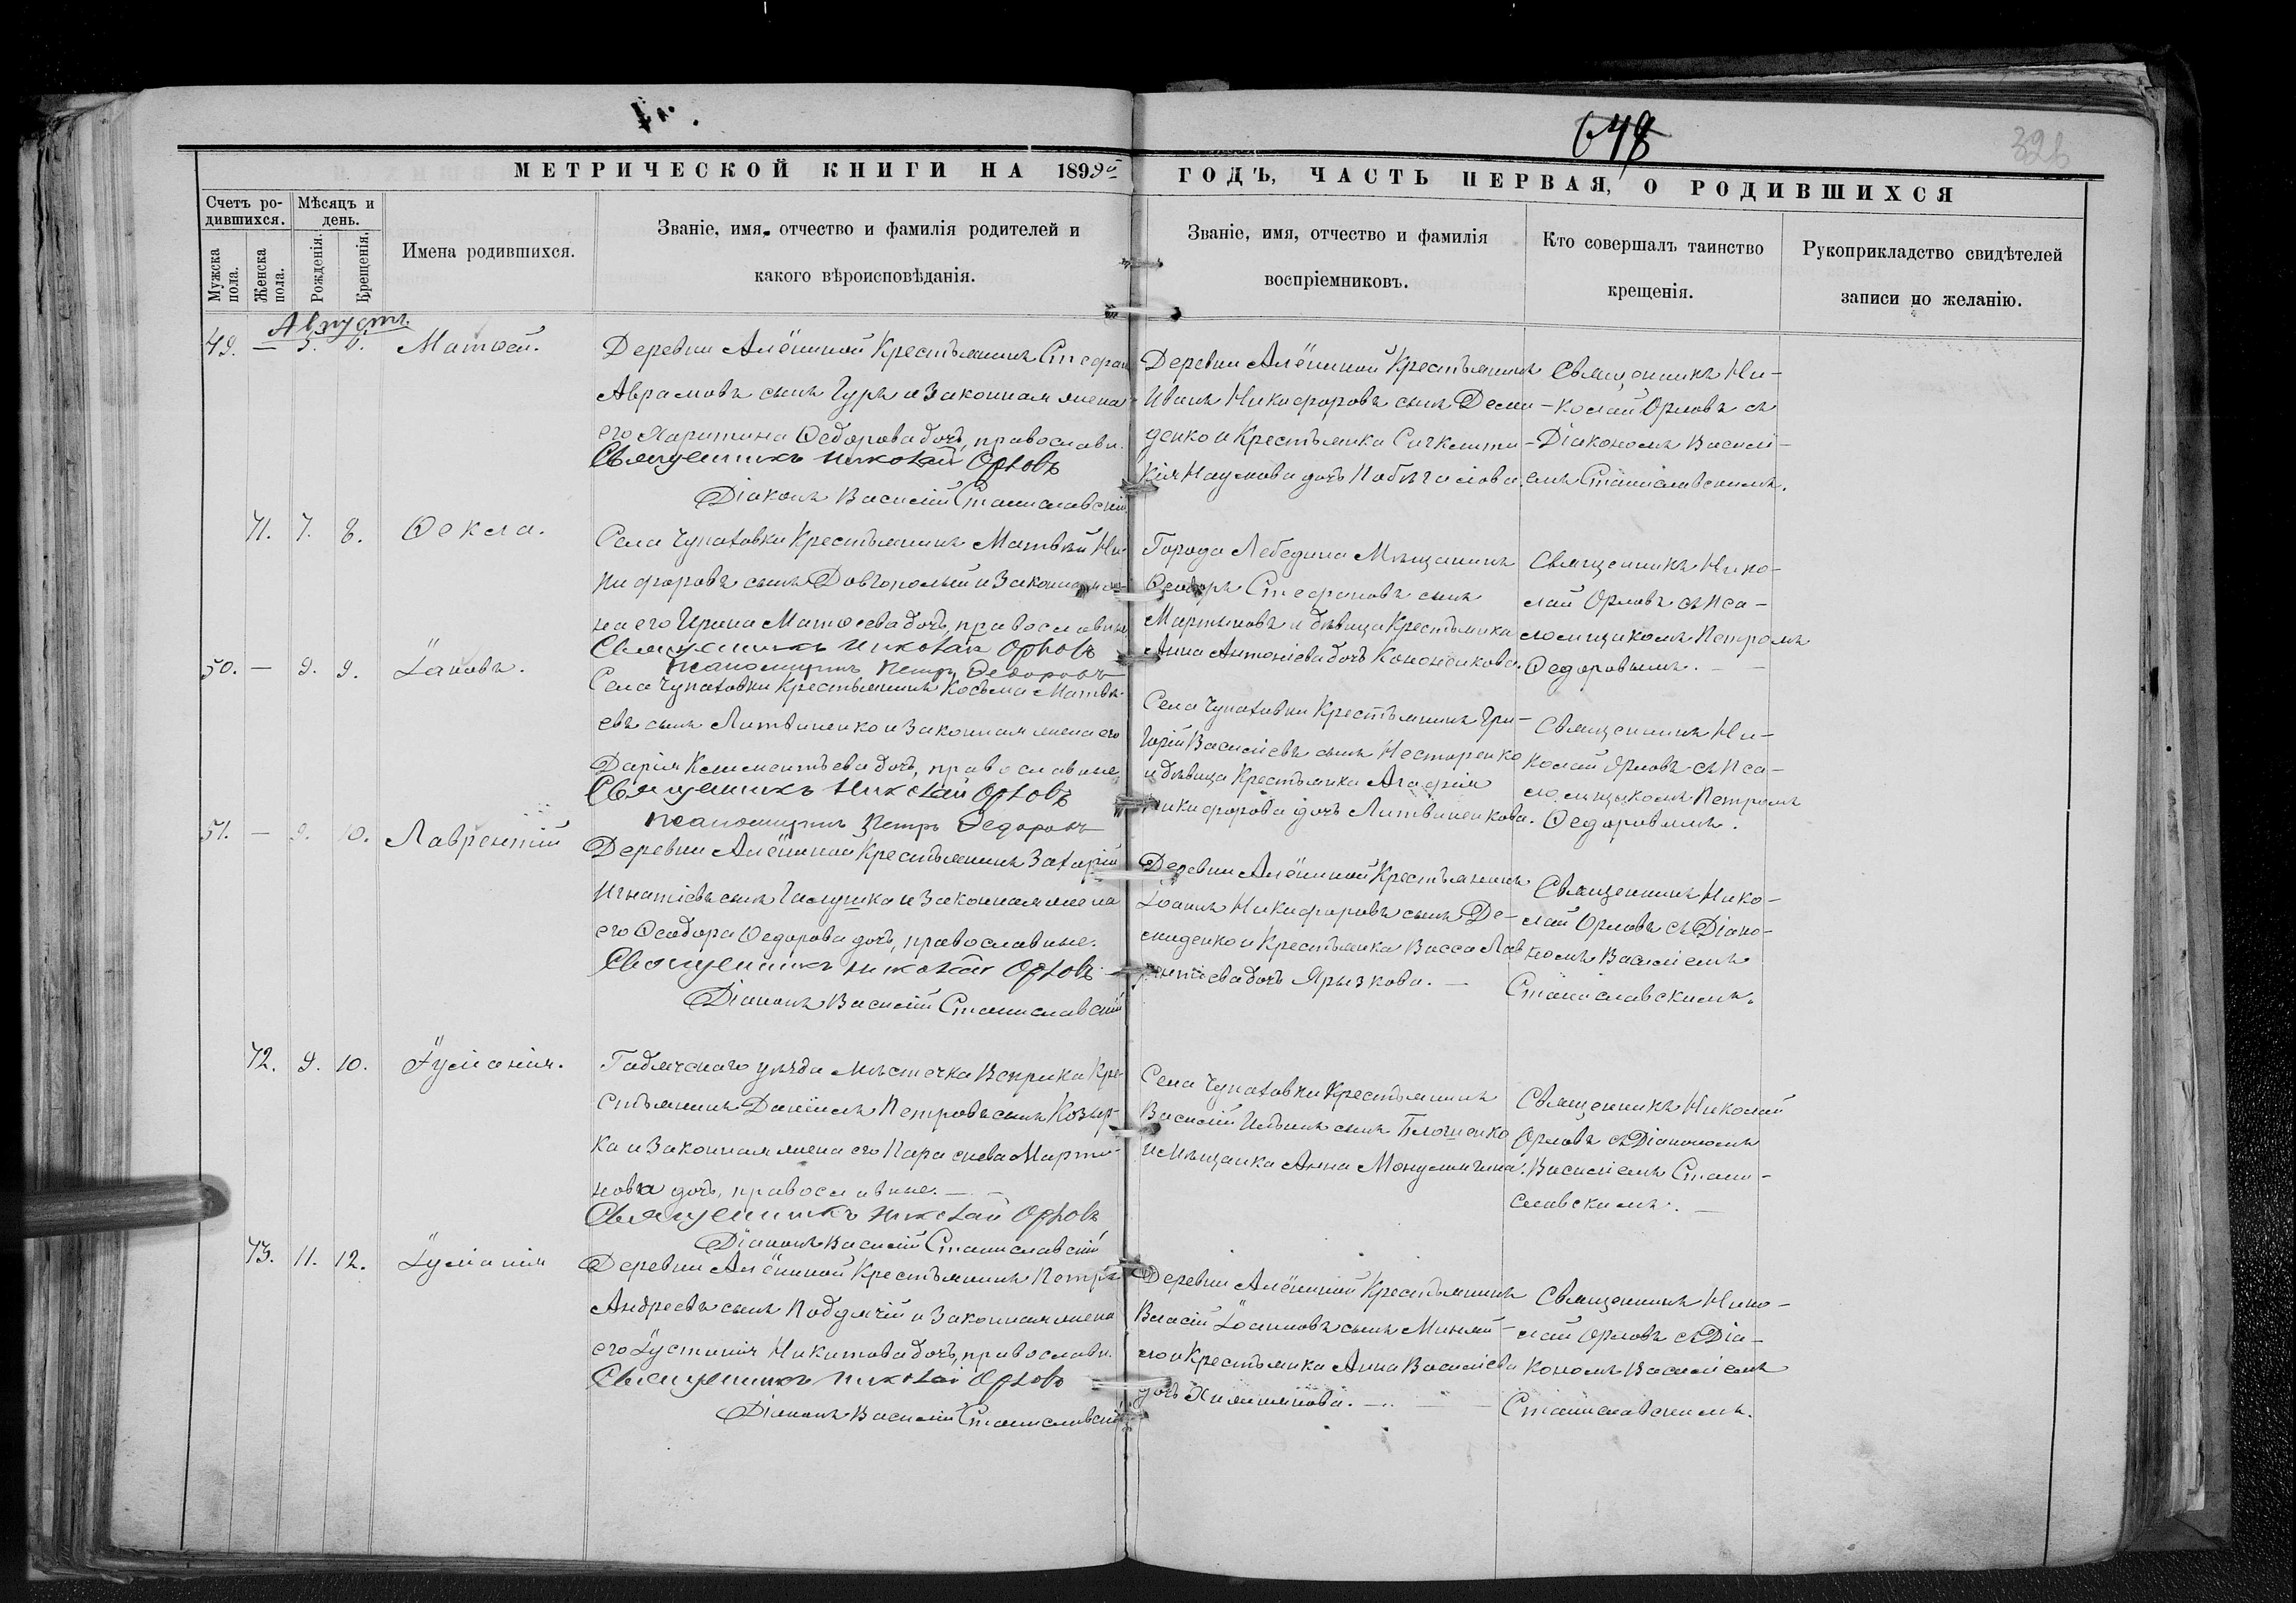 648
326
МЕТРИЧЕСКОЙ КНИГИ НА 1899й
ГОДЪ, ЧАСТЬ ПЕРВАЯ, О РОДИВШИХСЯ
Счетъ ро-
дившихся.
Мужска
пола.
Женска
пола.
Мѣсяцъ и
день.
Рожденія.
Крещенія.
Имена родившихся.
Званіе, имя, отчество и фамилія родителей и
какого вѣроисповѣданія.
Званіе, имя, отчество и фамилія
воспріемниковъ.
Кто совершалъ таинство
крещенія.
Рукоприкладство свидѣтелей
записи по желанію.
Августъ
49. — 5. Матѳей.
Деревни Алёшиной Крестьянинъ Стефан
Аврамовъ сынъ Гура и Законная жена
его Харитина Ѳедорова дочь, православн.
Священникъ Николай Орловъ
Діаконъ Василій Станиславскій.
Деревни Алёшиной Крестьянинъ
Иванъ Никифоровъ сынъ Деми-
денко и Крестьянка Сигклити-
кія Наумова дочь
Священникъ Ни-
колай Орловъ съ
Діакономъ Василі-
емъ Станиславскимъ.
71. 7. 8. Ѳекла.
Села Чупаховки Крестьянинъ Матвѣй Ни-
кифоровъ сынъ Довгополый и Законная же-
на его Ирина Матѳеева дочь, православные
Священникъ Николай Орловъ
Псаломщикъ Петръ Ѳедоровъ
Города Лебедина Мѣщанинъ
Ѳеодоръ Стефановъ сынъ
Мартыновъ и дѣвица Крестьянка
Анна Антоніева дочь Кононенкова.
Священникъ Нико-
лай Орловъ съ Пса-
ломщикомъ Петромъ
Ѳедоровымъ. —
50. — 9. 9. Іаковъ.
Села Чупаховки Крестьянинъ Косьма Матвѣ-
евъ сынъ Литвиненко и Законная жена его
Дарія Климентьева дочь, православные
Священникъ Николай Орловъ
Псаломщикъ Петръ Ѳедоровъ
Села Чупаховки Крестьянинъ Гри-
горій Василіевъ сынъ Несторенко
и дѣвица Крестьянка Агафія
Никифорова дочь Литвиненкова.
Священникъ Ни-
колай Орловъ съ Пса-
ломщикомъ Петромъ
Ѳедоровымъ.
51. — 9. 10. Лаврентій
Деревни Алёшиной Крестьянинъ Захарій
Игнатіевъ сынъ Галушка и Законная жена
его Ѳеодора Ѳедорова дочь, православные.
Священникъ Николай Орловъ
Діаконъ Василій Станиславскій
Деревни Алёшиной Крестьянинъ
Іоаннъ Никифоровъ сынъ Де-
миденко и Крестьянка Васса Лав
рентіева дочь Ярызкова. —
Священникъ Нико-
лай Орловъ съ Діако-
номъ Василіемъ
Станиславскимъ.
72. 9. 10. Іуліанія.
Гадячскаго уѣзда Мѣстечка Веприка Кре-
стьянинъ Даніилъ Петровъ сынъ Козыр-
ка и Законная жена его Параскева Марти-
нова дочь, православные. —
Священникъ Николай Орловъ
Діаконъ Василій Станиславскій
Села Чупаховки Крестьянинъ
Василій Ильинъ сынъ
и Мѣщанка Анна
Священникъ Николай
Орловъ съ Діакономъ
Василіемъ Стани-
славскимъ. —
73. 11. 12. Іуліанія
Деревни Алёшиной Крестьянинъ Петръ
Андреевъ сынъ и Законная жена
его Іустинія Никитова дочь, православн.
Священникъ Николай Орловъ
Діаконъ Василій Станиславскій
Деревни Алёшиной Крестьянинъ
Власій Іоанновъ сынъ
и Крестьянка Анна Василіева
дочь
Священникъ Нико-
лай Орловъ съ Діа-
кономъ Василіемъ
Станиславскимъ.